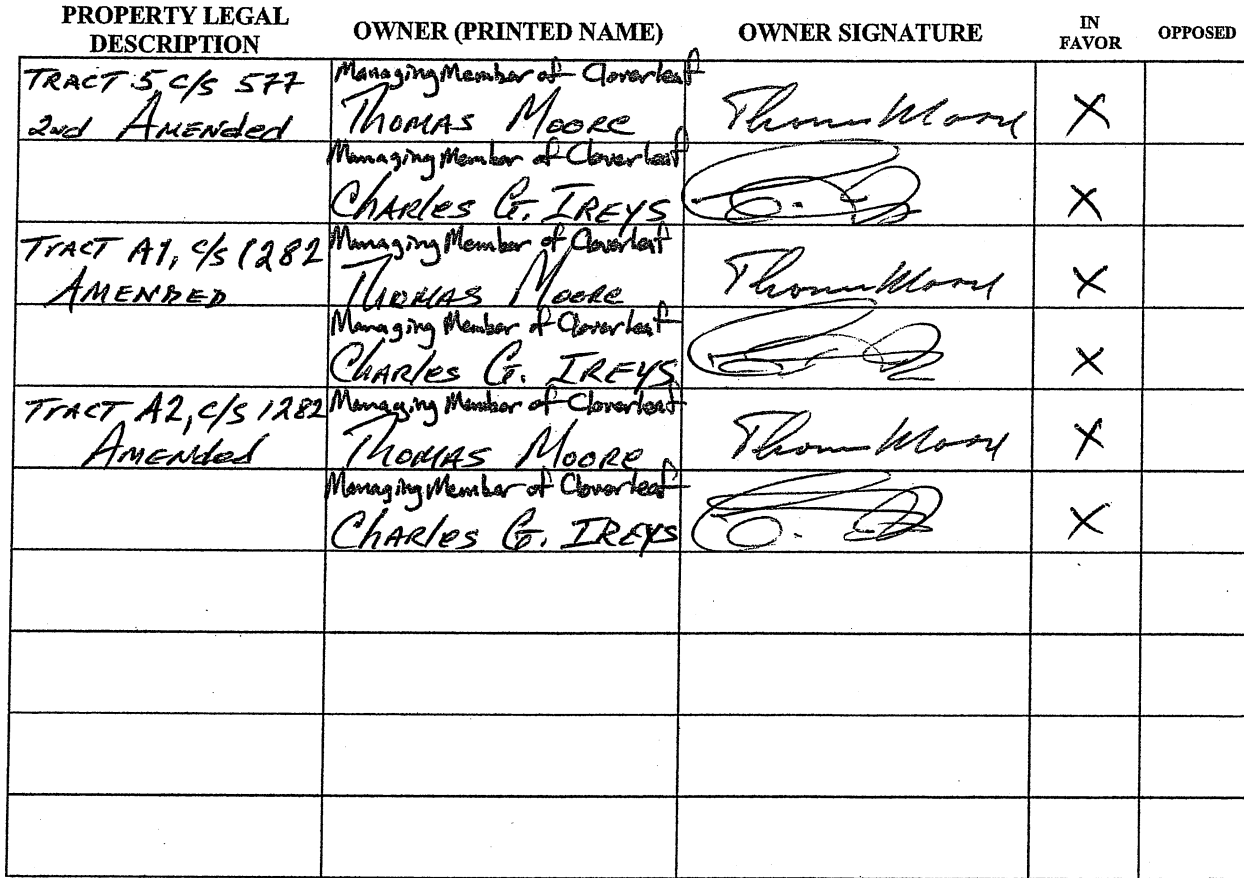 PROPERTY LEGAL
DESCRIPTION
OWNER (PRINTED NAME)
OWNER SIGNATURE
IN
FAVOR
OPPOSED
TRACT 5, C/S 577
2nd AMENded
Managing Member of Cloverleaf
THOMAS MOORE
Thomas Moore
X
Managing Member of Cloverleaf
CHARles G. IREYS
X
TRACT A1, C/S 1282
AMENDED
Managing Member of Cloverleaf
THOMAS MOORE
Thomas Moore
X
Managing Member of Cloverleaf
CHARles G. IREYS
X
TRACT A2, C/S 1282
AMENded
Managing Member of Cloverleaf
THOMAS MOORE
Thomas Moore
X
Managing Member of Cloverleaf
CHARles G. IREYS
X